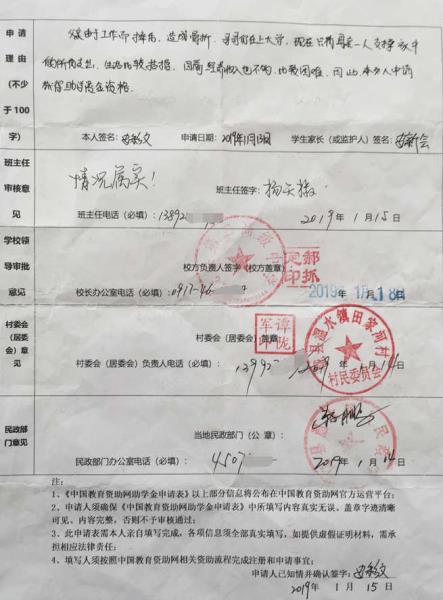 申请
理由
(不少
于 100
字)
父亲由于工作而摔伤，造成骨折，哥哥们在上大学，现在只有母亲一人支撑家中
的所有支出，生活比较拮据，因而经济收入也不够，比较困难，因此，本人申请
本人签名:
申请日期: 2019年1月13日
学生家长（或监护人）签名:
班主任
审核意
见
情况属实!
班主任签字:
班主任电话（必填）: 13892
2019 年 1 月 15 日
学校领
导审批
意见
校方负责人签字（校方盖章）:
校长办公室电话（必填）: 0917-46
2019年 1月 18日
村委会
(居委
会）意
见
村委会（居委会）盖章:
村委会（居委会）负责人电话（必填）: 13992
2019 年 1 月 14
温水镇田家河村
村民委员会
民政部
门意见
当地民政部门（公 章）:
民政部门办公室电话（必填）: 4507
2019 年 1 月 14
注:
1、《中国教育资助网助学金申请表》以上部分信息将公布在中国教育资助网官方运营平台;
2、申请人须确保《中国教育资助网助学金申请表》中所填写内容真实无误。盖章字迹清晰
可见。内容完整，否则不予审核通过;
3、此申请表需本人亲自填写完成，各项信息须全部真实填写，如提供虚假证明材料，需承
担相应法律责任;
4、填写人须按照中国教育资助网相关资助流程完成注册和申请事宜;
申请人已知情并确认签字:
2019 年 1 月 15 日